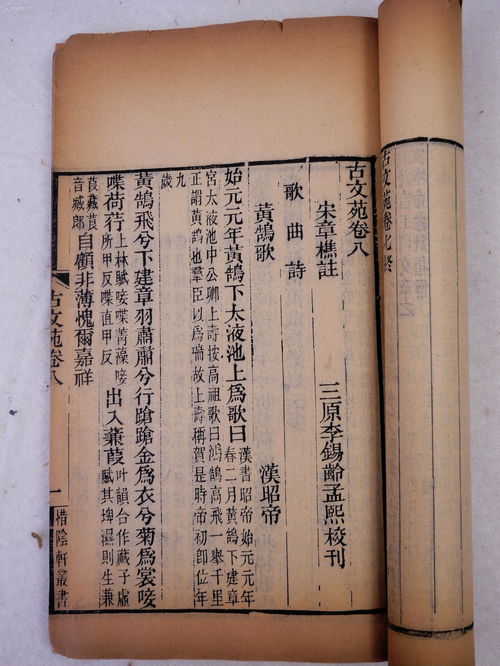 古文苑卷九終
古文苑卷八
宋章樵註　三原李錫齡孟熙校刊
歌曲詩
黃鵠歌　漢昭帝
始元元年黃鵠下太液池上爲歌曰漢書昭帝始元元年
春二月黃鵠下建章
宮太液池中公卿上壽按高祖歌曰鴻鵠高飛一舉千里
正謂黃鵠也羣臣以爲瑞故上壽稱賀是時帝初卽位年
九
歲
黃鵠飛兮下建章羽肅肅兮行蹌蹌金爲衣兮菊爲裳唼
喋荷荇上林賦唼喋菁藻唼
所甲反喋直甲反出入蒹葭叶韻合作藏子虛
賦其埤濕則生兼
葭藏莨
音臧郎自顧非薄愧爾嘉祥
古文苑卷八
一
惜陰軒叢書